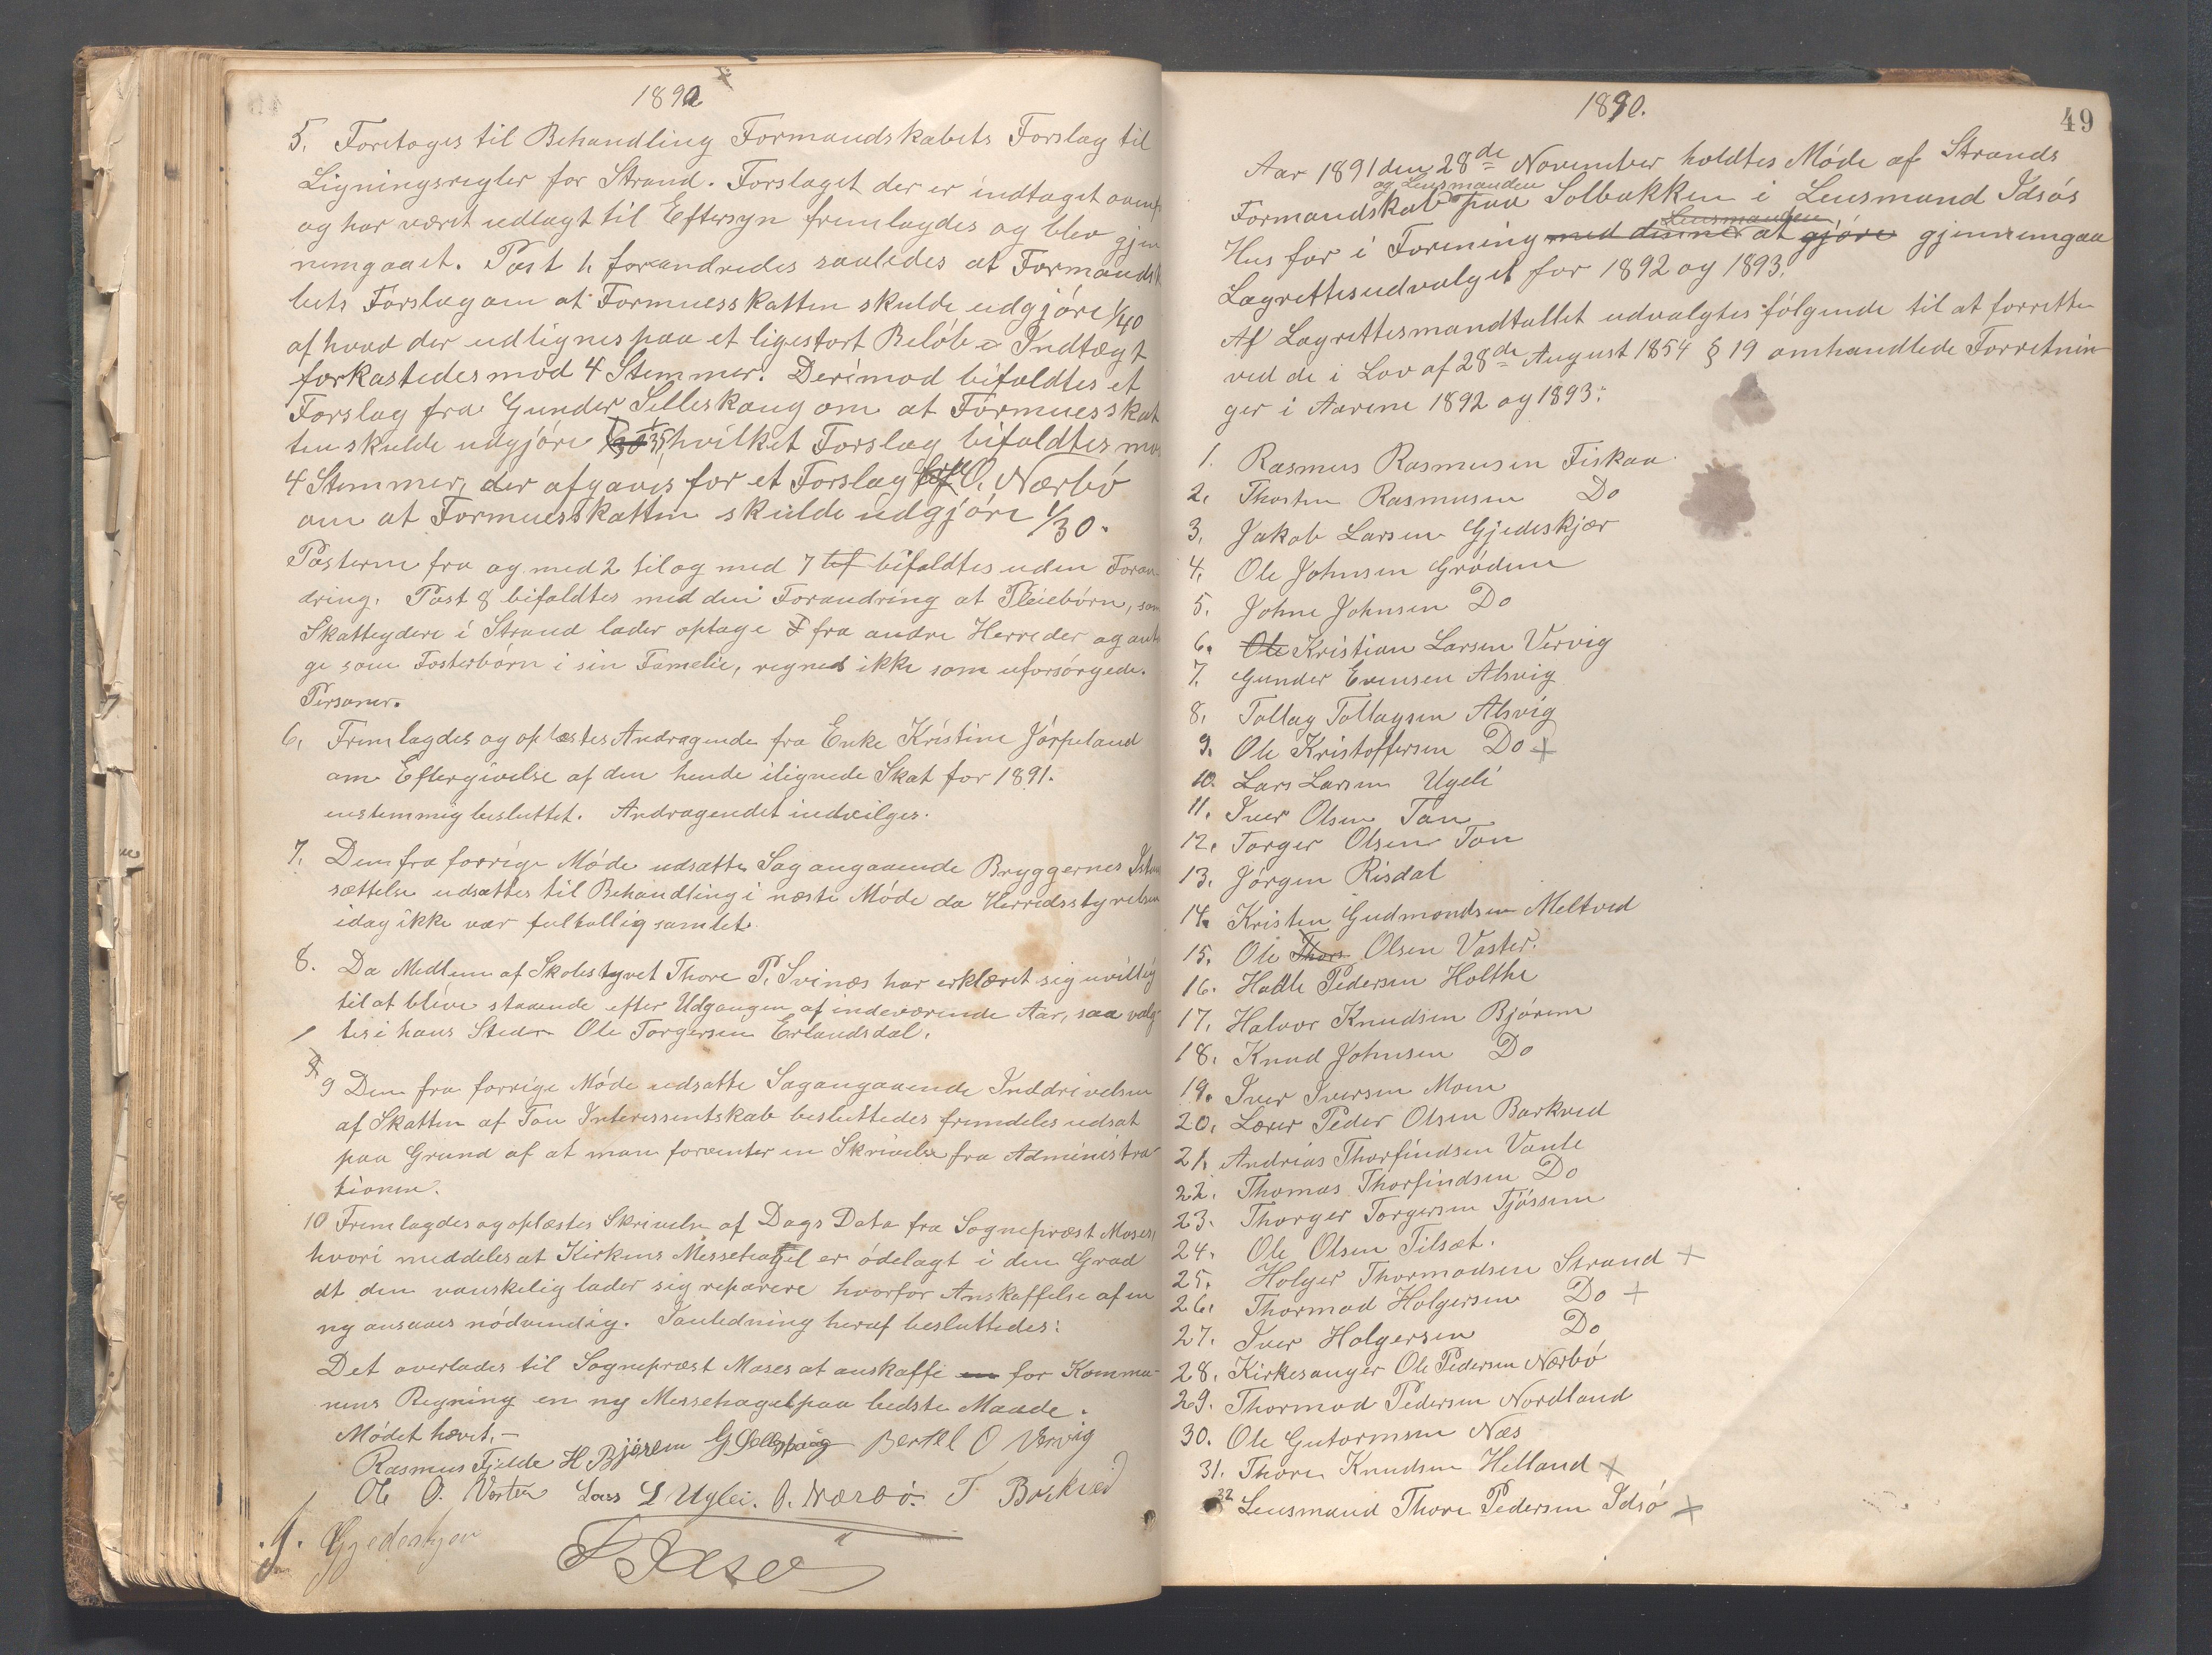 1890
5. Foretoges til Behandling Formandskabets Forslag til
Ligningsregler for Strand. Forslaget der er indtaget
og har været udlagt til Eftersyn fremlagdes og blev gjen
nemgaaet. Post 1, forandredes saaledes at Formandsk
bets Forslag om at Formuesskatten skulde udgjøre 1/40
af hvad der udlignes paa et ligestort Beløb Indtægt
forkastedes mod 4 Stemmer. Derimod bifaldtes et
Forslag fra Gunder Selleskaug om at Formuesskat
ten skulde udgjøre 1/35 hvilket Forslag bifaldtes mod
4 Stemmer, der afgaves for et Forslag O. Nærbø
om at Formuesskatten skulde udgjøre 1/30.
Posterne fra og med 2 til og med 7 bif bifaldtes uden Foran
dring. Post 8 bifaldtes med den Forandring at Pleiebørn, som
Skatteydere i Strand lader optage F fra andre Herreder og anta
ge som Fosterbørn i sin Familie, regnes ikke som uforsørgede
Personer.
6, Fremlagdes og oplæstes Andragende fra Enke Kristine Jørpeland
om Eftergivelse af den hende ilignede Skat for 1891.
enstemmig besluttet. Andragendet indvilges.
7. Den fra forrige Møde udsatte Sag angaaende Bryggernes Istand
sættelse udsættes til Behandling i næste Møde da Herredsstyrelsen
idag ikke var fultallig samlet.
8. Da Medlem af Skolestyret Thore P. Svinæs har erklæret sig uvillig
til at blive staaende efter Udgangen af indeværende Aar, saa valg
tes i hans Sted Ole Torgersen Erlandsdal.
9 Den fra forrige Møde udsatte Sag angaaende Inddrivelsen
af Skatten af Tou Interessentskab besluttedes fremdeles udsat
paa Grund af at man forventer en Skrivelse fra Administra
tionen.
10 Fremlagdes og oplæstes Skrivelse af Dags Dato fra Sognepræst Moses,
hvori meddeles at Kirkens Messehagel er ødelagt i den Grad
at den vanskelig lader sig reparere hvorfor Anskaffelse af en
ny ansaaes nødvendig. I anledning heraf besluttedes:
Det overlades til Sognepræst Moses at anskaffe en for Kommu-
nens Regning en ny Messehagel paa bedste Maade.
Mødet hævet.-
Rasmus Fjelde H Bjørem G Selleskaug Bertel O Vervig
Ole O. Vaster Lars L Uglei. O. Nærbø. T Barkved
J. Gjedeskjer
T Idsø
1890.
49
Aar 1891 den 28de November holdtes Møde af Strands
og Lensmanden
Formandskab paa Solbakken i Lensmand Idsøs
Lensmanden
Hus for i Forening med denne at gjøre gjennemgaa
Lagrettesudvalget for 1892 og 1893.
Af Lagrettesmandtallet udvalgtes følgende til at forrette
ved de i Lov af 28de August 1854 § 19 omhandlede Forretnin
ger i Aarene 1892 og 1893:
1. Rasmus Rasmusen Fiskaa
2. Thosten Rasmusen Do
3. Jakob Larsen Gjedeskjær
4. Ole Johnsen Grødem
5. Johne Johnsen Do
6. Ole Kristian Larsen Vervig
7. Gunder Evensen Alsvig
8. Tollag Tollagsen Alsvig
9. Ole Kristoffersen Do +
10. Lars Larsen Ugeli
11. Iver Olsen Tou
12. Torger Olsen Tou
13. Jørgen Risdal
14. Kristen Gudmondsen Meltved
15. Ole Thors Olsen Vaster.
16. Hadle Pedersen Holthe
17. Halvor Knudsen Bjørem
18. Knud Johnsen Do
19. Iver Iversen Moen
20. Lærer Peder Olsen Barkved
21. Andrias Thorfindsen Vaule
22. Thomas Thorfindsen Do
23. Thorger Torgersen Tjøssem
24. Ole Olsen Tilsæt.
25. Holger Thormodsen Strand +
26. Thormod Holgersen Do +
27. Iver Holgersen Do
28. Kirkesanger Ole Pedersen Nærbø
29. Thormod Pedersen Nordland
30. Ole Gutormsen Næs
31. Thore Knudsen Helland +
32 Lensmand Thore Pedersen Idsø +